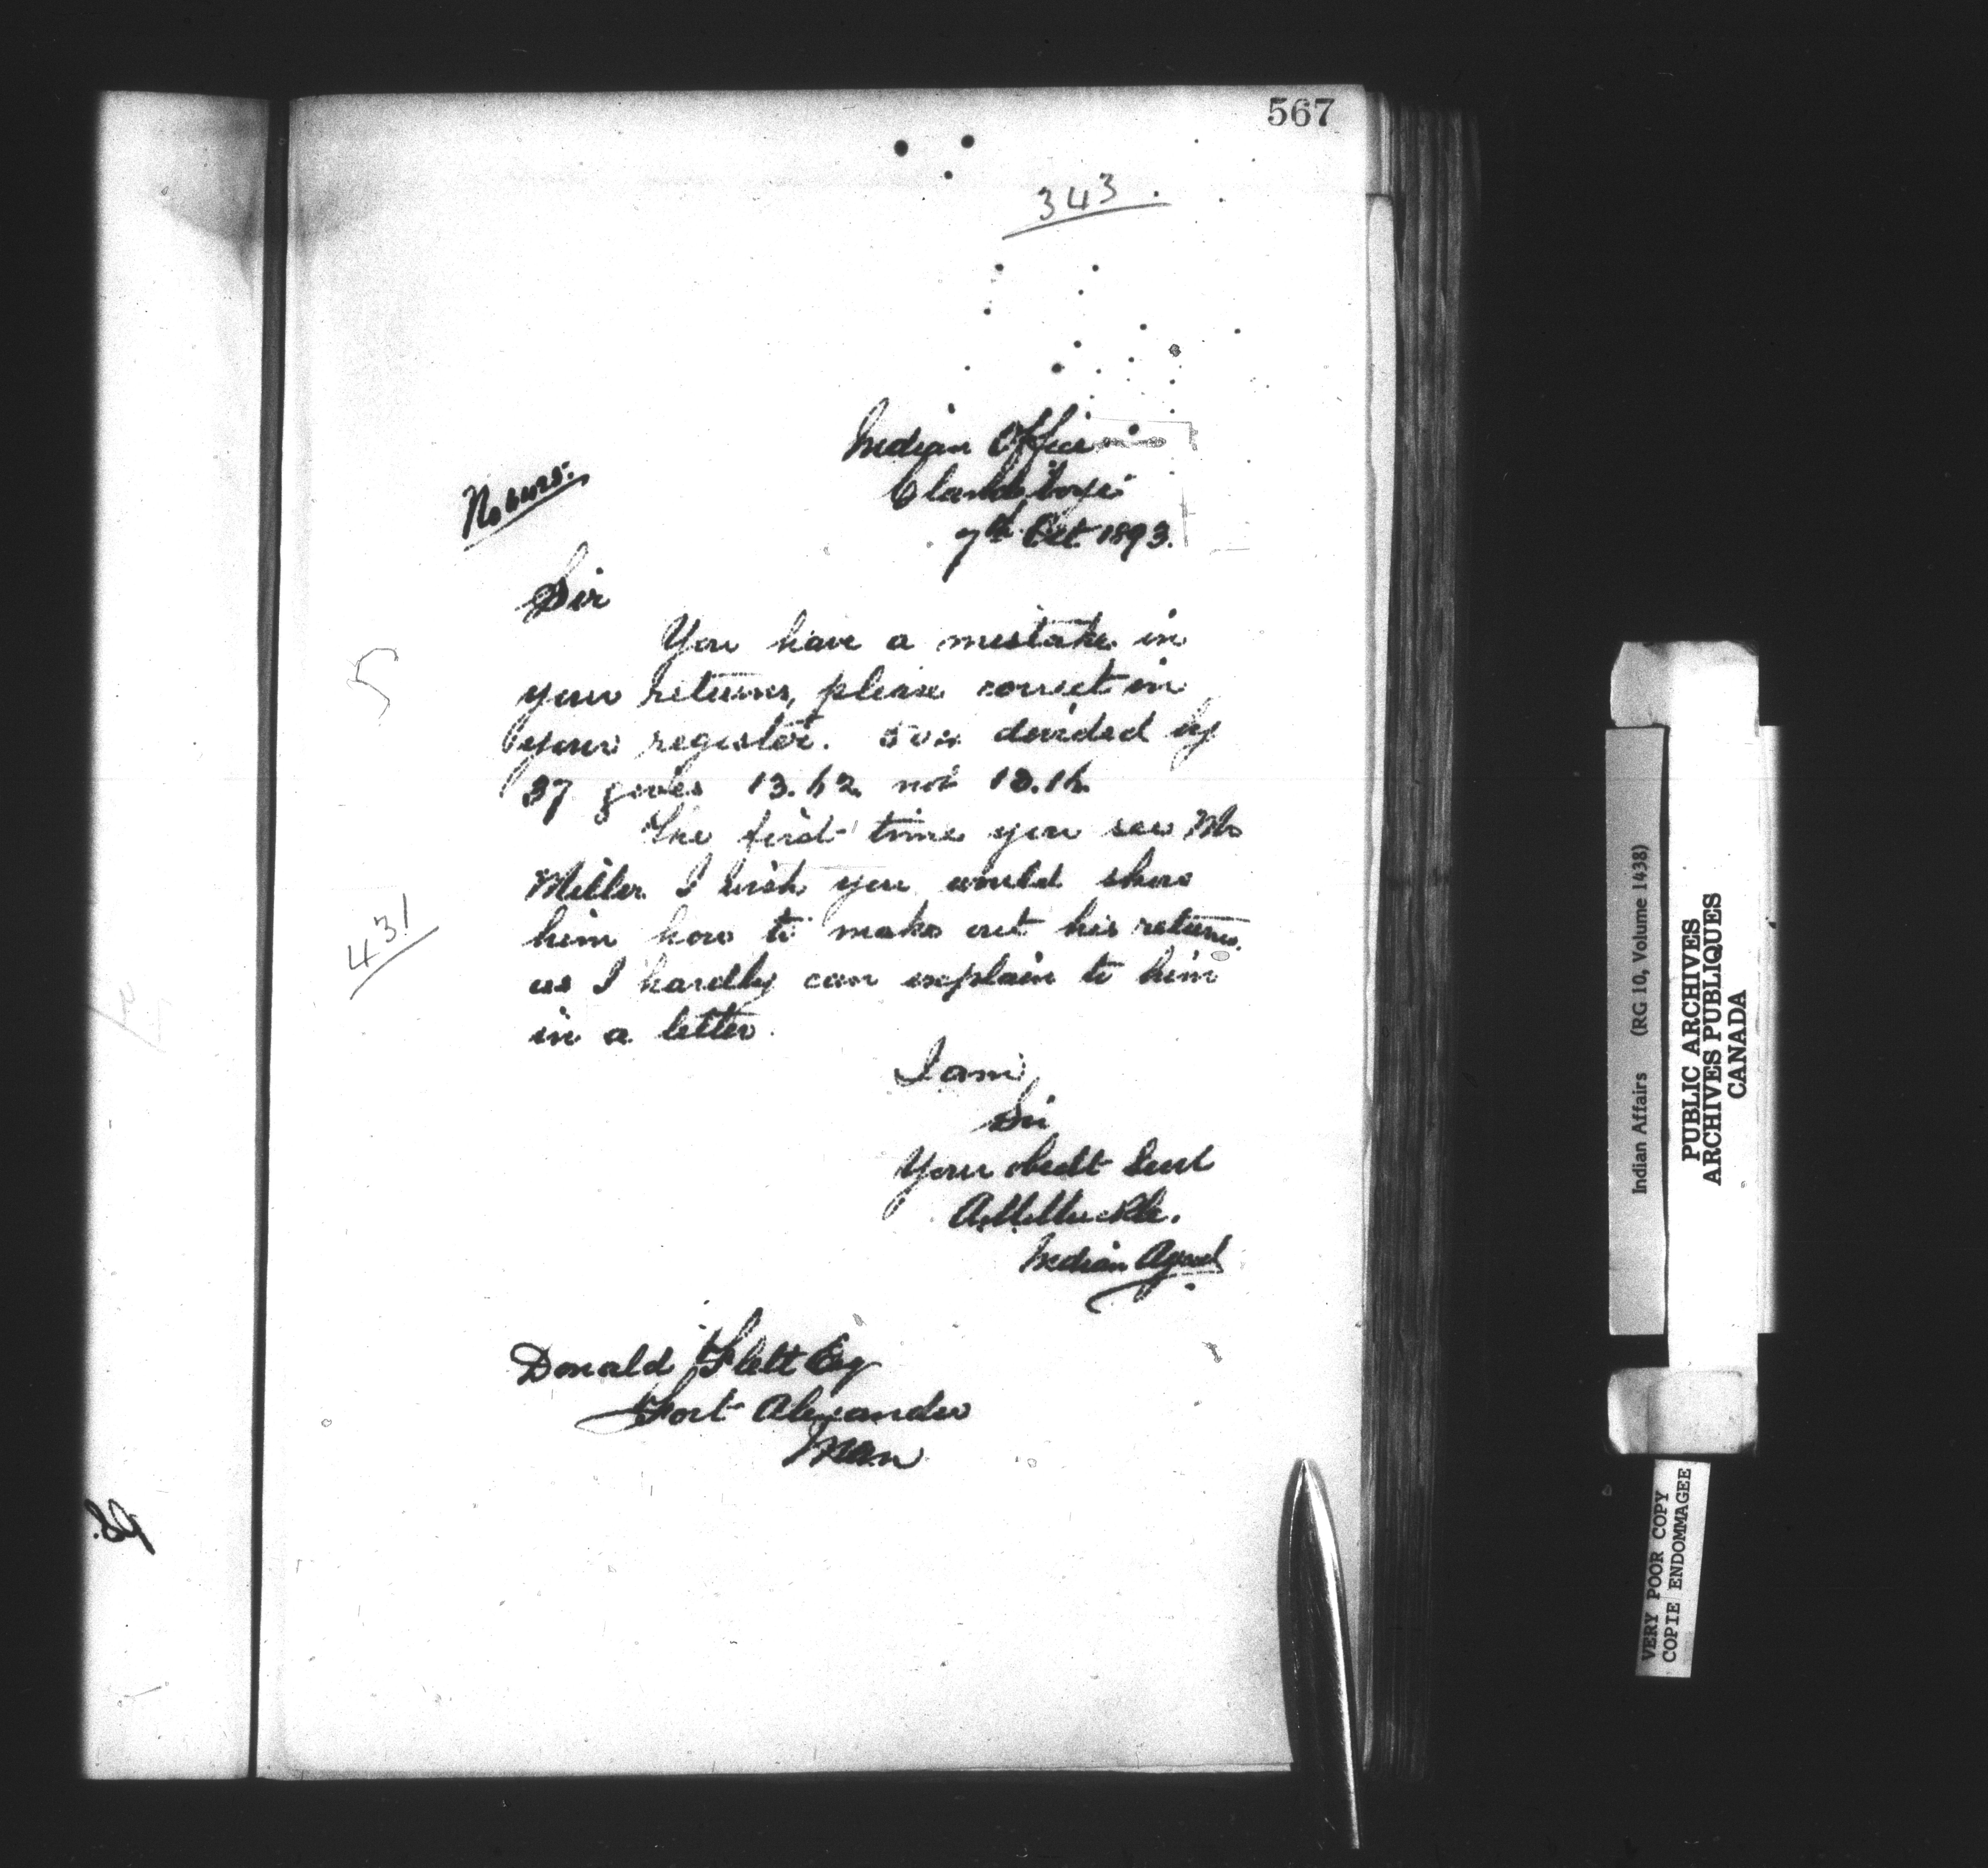 567
343.
Indian Office
Clandeboye
7th Oct. 1893.
Sir
You have a mistake in
your returns, please correct in
your register. 504 divided by
37 gives 13.62 not 13.16
The first time you see Mr
Miller I wish you would show
him how to make out his returns
as I hardly can explain to him
in a letter.
I am
Sir
Your obedt Servt
A. M. Muckle.
Indian Agent
431
Donald Flett Esq
Fort Alexander
Man
Indian Affairs (RG 10, Volume 1438)
PUBLIC ARCHIVES
ARCHIVES PUBLIQUES
CANADA
VERY POOR COPY
COPIE ENDOMMAGEE